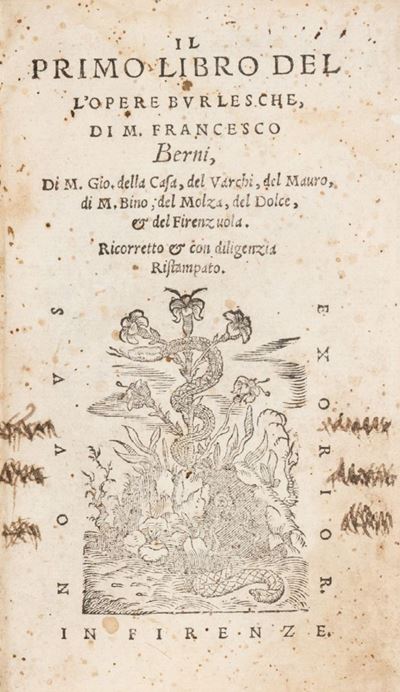 IL
PRIMO LIBRO DEL
L'OPERE BVRLESCHE,
DI M. FRANCESCO
Berni,
Di M. Gio. della Caſa, del Varchi, del Mauro,
di M. Bino, del Molza, del Dolce,
& del Firenzuola.
Ricorretto & con diligenzia
Riſtampato.
NOVVS
EXORIOR.
IN FIRENZE.